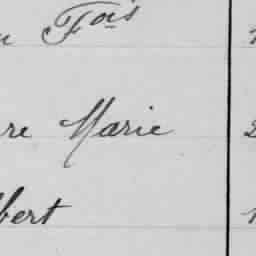 u Fois
re Marie
bert